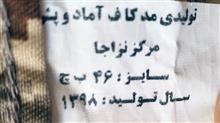 تولیدی مد کاف آماد و پش
مرکز نزاجا
سایز: ۴۶ ب ج
سال تولید: ۱۳۹۸